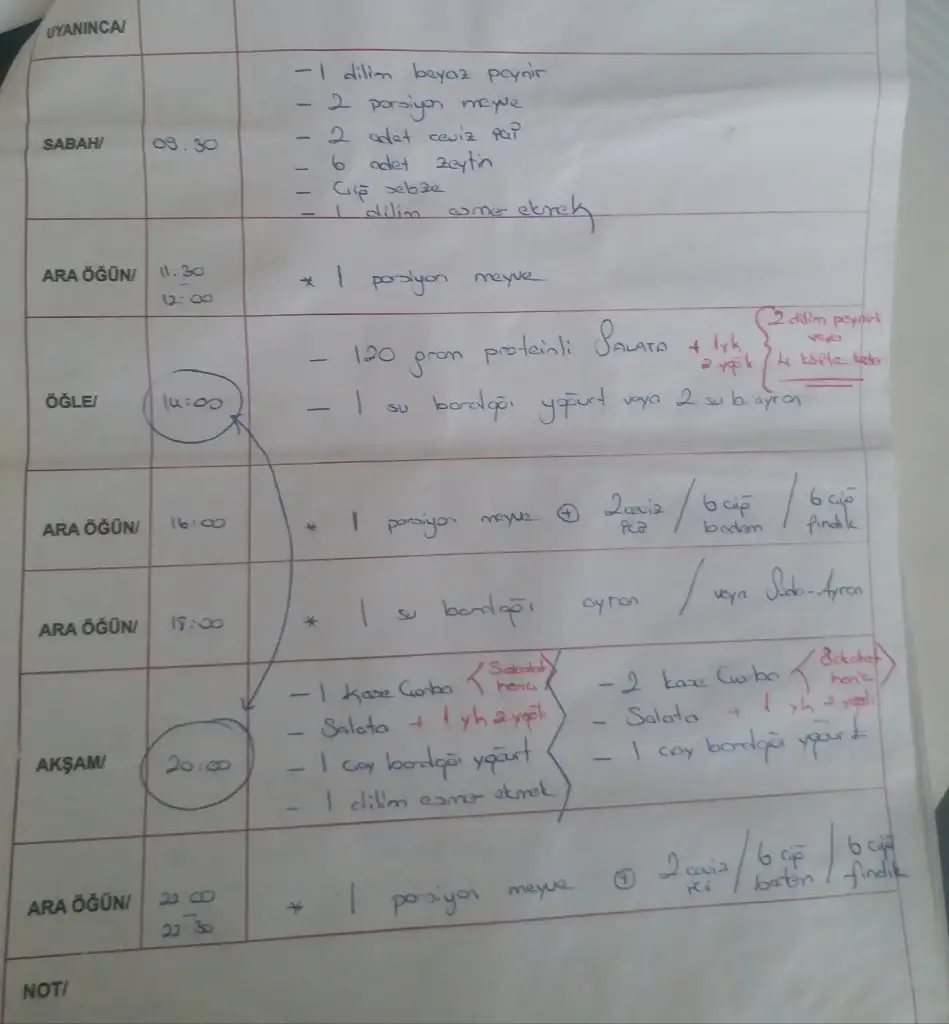 UYANINCA/
SABAH/
09.30
- 1 dilim beyaz peynir
- 2 porsiyon meyve
- 2 adet ceviz içi
- 6 adet zeytin
- Çiğ sebze
- 1 dilim esmer ekmek
ARA ÖĞÜN/
11.30
12:00
* 1 porsiyon meyve
ÖĞLE/
14:00
- 120 gram proteinli SALATA + 1yk
2 yağlı
2 dilim peynir
veya
4 köfte kadar
- 1 su bardağı yoğurt veya 2 su b. ayran
ARA ÖĞÜN/
16:00
* 1 porsiyon meyve + 2 ceviz içi / 6 çiğ badem / 6 çiğ fındık
ARA ÖĞÜN/
18:00
* 1 su bardağı ayran / veya Soda-Ayran
AKŞAM/
20:00
- 1 kase Çorba
- Salata + 1 yk z.yağlı
- 1 çay bardağı yoğurt
- 1 dilim esmer ekmek
- 2 kase Çorba
- Salata + 1 yk z.yağlı
- 1 çay bardağı yoğurt
ARA ÖĞÜN/
22 00
22 30
* 1 porsiyon meyve + 2 ceviz içi / 6 çiğ badem / 6 çiğ fındık
NOT/